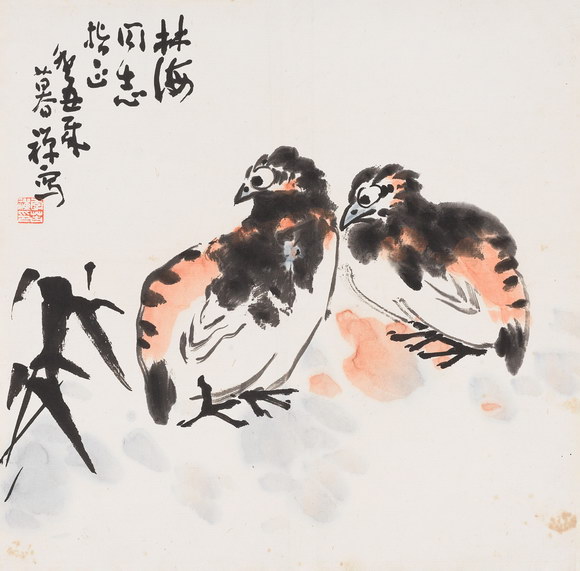 林海
同志
指正
癸丑年
暮禅写